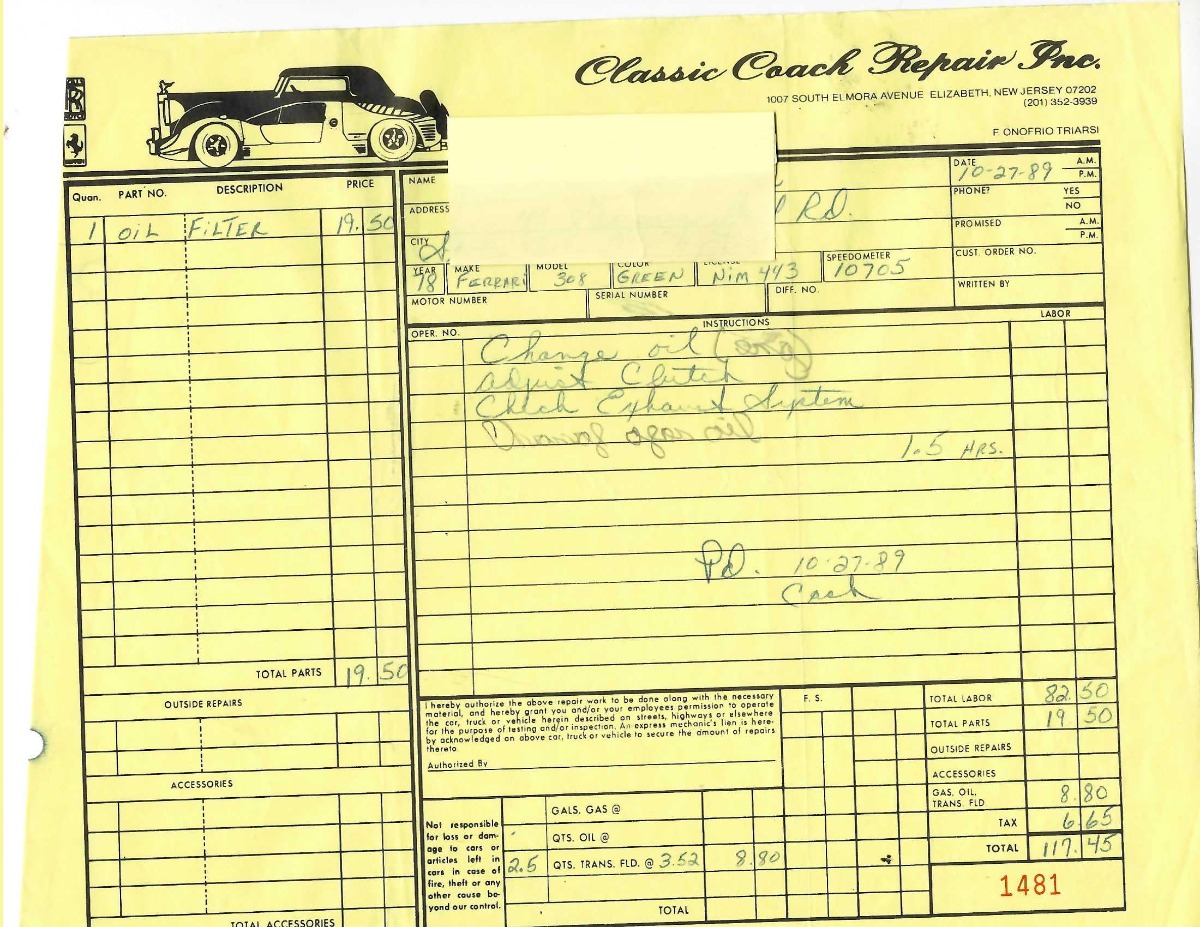 Classic Coach Repair Inc.
1007 SOUTH ELMORA AVENUE ELIZABETH, NEW JERSEY 07202
(201) 352-3939
F. ONOFRIO TRIARSI
Quan. PART NO. DESCRIPTION PRICE
1 OIL FILTER 19.50
TOTAL PARTS 19.50
OUTSIDE REPAIRS
ACCESSORIES
TOTAL ACCESSORIES
NAME
ADDRESS Rd.
CITY
DATE 10-27-89 A.M.
P.M.
PHONE? YES
NO
PROMISED A.M.
P.M.
CUST. ORDER NO.
WRITTEN BY
YEAR MAKE MODEL COLOR LICENSE SPEEDOMETER
78 FERRARI 308 GREEN NIM 443 10705
MOTOR NUMBER SERIAL NUMBER DIFF. NO.
OPER. NO. INSTRUCTIONS LABOR
Change oil
adjust Clutch
Check Exhaust System
1.5 HRS.
Pd. 10-27-89
Cash
I hereby authorize the above repair work to be done along with the necessary
material, and hereby grant you and/or your employees permission to operate
the car, truck or vehicle herein described on streets, highways or elsewhere
for the purpose of testing and/or inspection. An express mechanic's lien is here-
by acknowledged on above car, truck or vehicle to secure the amount of repairs
thereto.
Authorized By
F. S.
TOTAL LABOR 82.50
TOTAL PARTS 19 50
OUTSIDE REPAIRS
ACCESSORIES
GAS, OIL,
TRANS. FLD 8.80
TAX 6.65
TOTAL 117.45
Not responsible
for loss or dam-
age to cars or
articles left in
cars in case of
fire, theft or any
other cause be-
yond our control.
GALS. GAS @
QTS. OIL @
2.5 QTS. TRANS. FLD. @ 3.52 8.80
TOTAL
1481